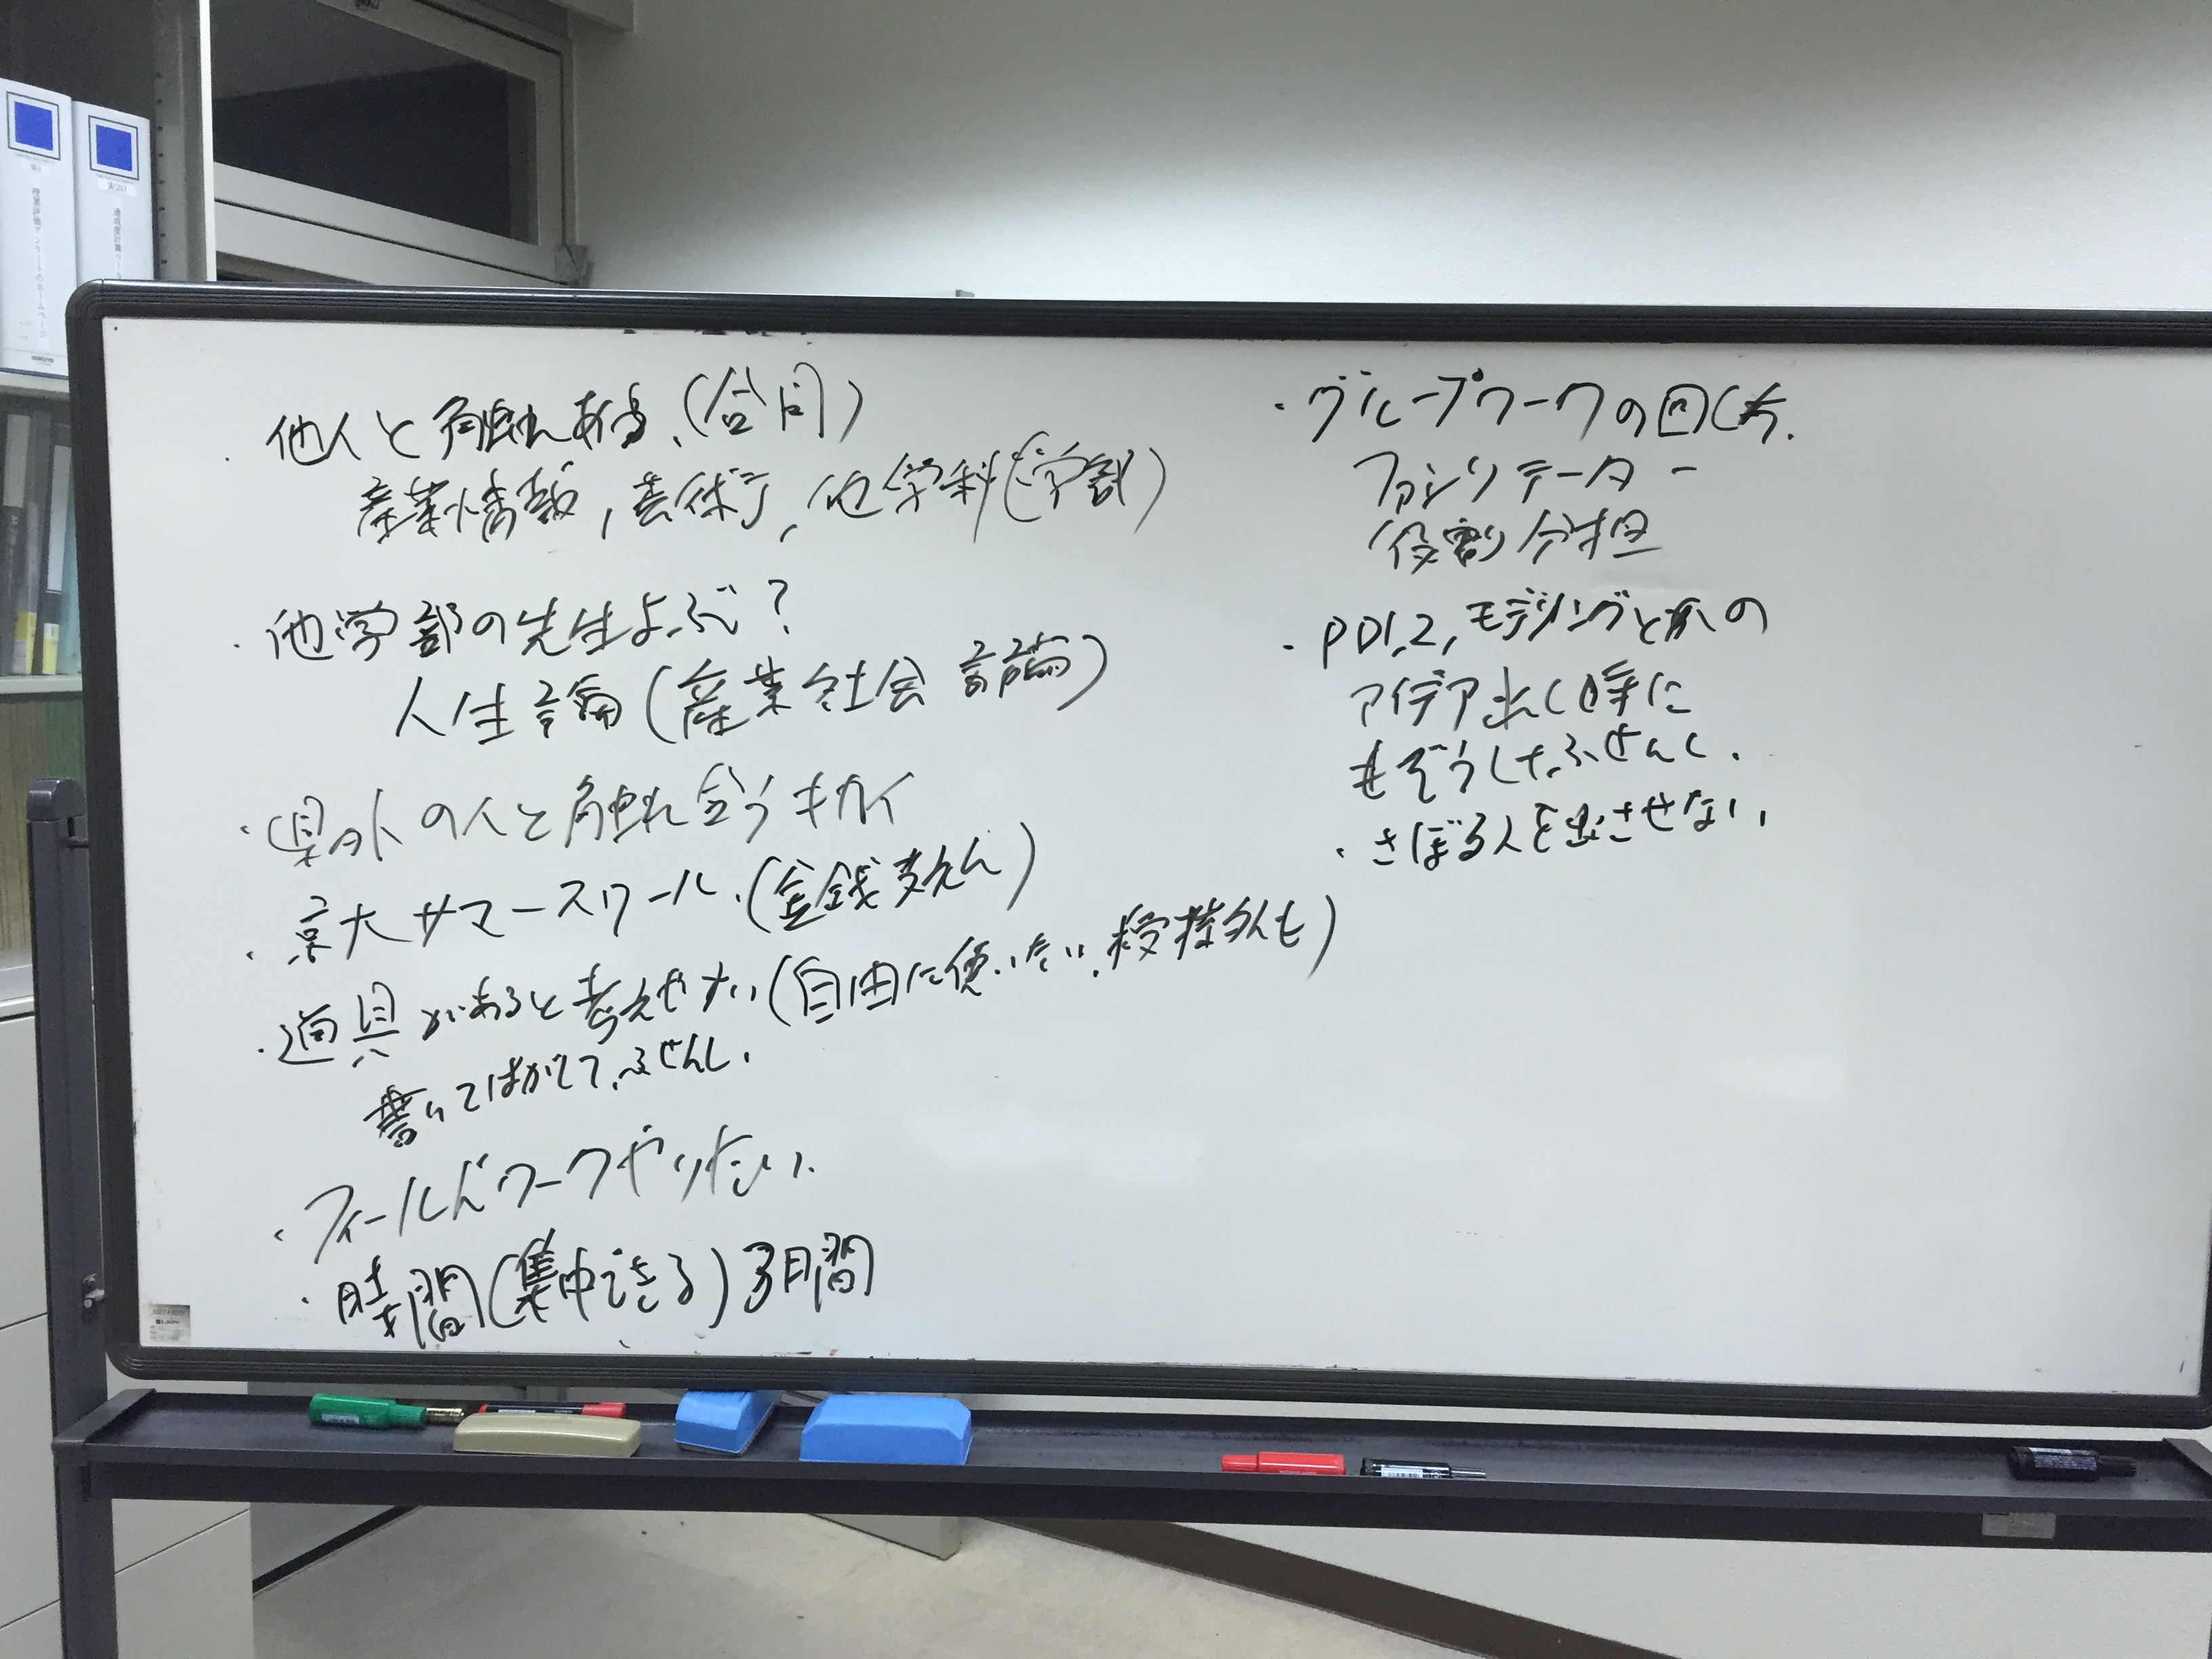 ・他人と触れあう、(合同)
産業情報, 芸術, 他学科(学部)
・他学部の先生よぶ?
人生論(産業社会論)
・県外の人と触れ合うキカイ
・京大サマースクール.(金銭支えん)
・道具があると考えやすい(自由に使いたい、授業外も)
書いてはがして、ふせんし.
・フィールドワークやりたい.
・時間(集中できる)3日間
・グループワークの回し方.
ファシリテーター
役割分担
・PD1,2, モデリングとかの
アイデア出し時に
もぞうし+ふせんし.
・さぼる人を出させない,
授業評価アンケートのホームページ
実20
達成度計算ツール